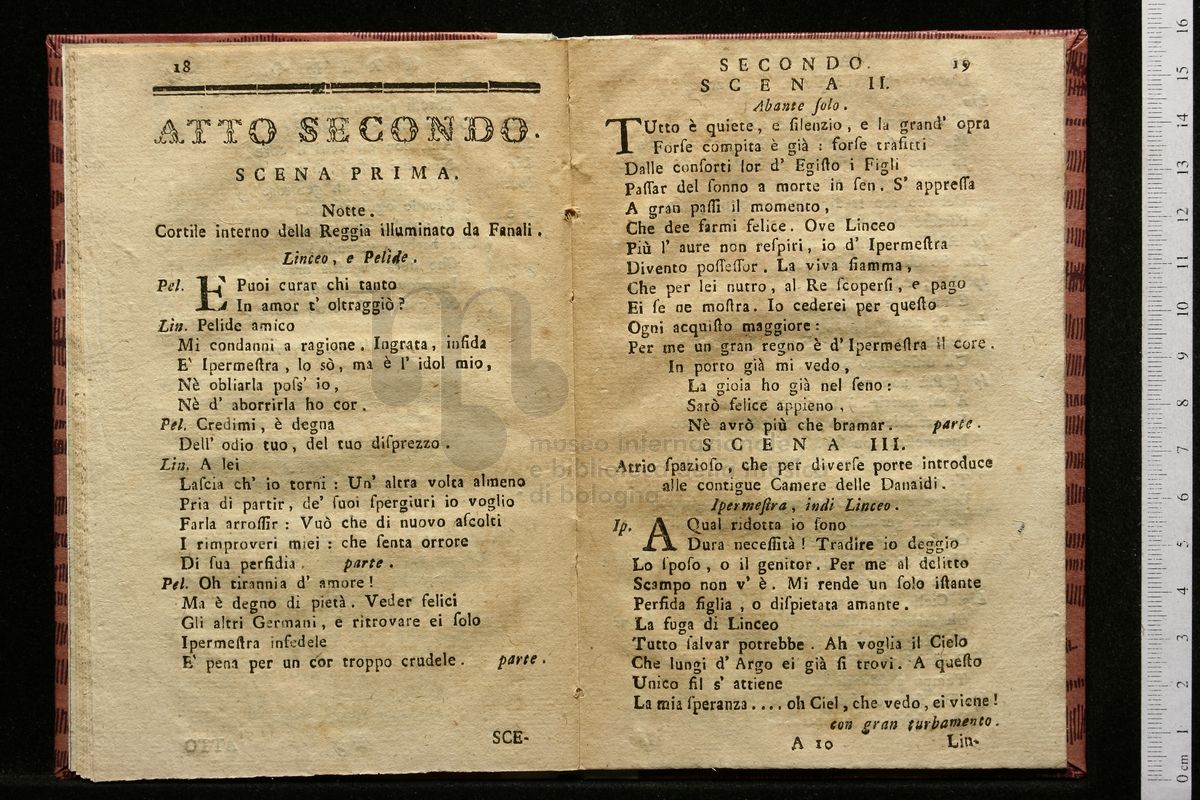 18
ATTO SECONDO.
SCENA PRIMA.
Notte.
Cortile interno della Reggia illuminato da Fanali.
Linceo, e Pelide.
Pel. E Puoi curar chi tanto
In amor t' oltraggiò?
Lin. Pelide amico
Mi condanni a ragione. Ingrata, infida
E' Ipermeſtra, lo sò, ma è l' idol mio,
Nè obliarla poſs' io,
Nè d' aborrirla ho cor.
Pel. Credimi, è degna
Dell' odio tuo, del tuo diſprezzo.
Lin. A lei
Laſcia ch' io torni: Un' altra volta almeno
Pria di partir, de' ſuoi ſpergiuri io voglio
Farla arroſſir: Vuò che di nuovo aſcolti
I rimproveri miei: che ſenta orrore
Di ſua perfidia. parte.
Pel. Oh tirannia d' amore!
Ma è degno di pietà. Veder felici
Gli altri Germani, e ritrovare ei ſolo
Ipermeſtra infedele
E' pena per un cor troppo crudele. parte.
SCE-
SECONDO. 19
SCENA II.
Abante ſolo.
TUtto è quiete, e ſilenzio, e la grand' opra
Forſe compita è già: forſe trafitti
Dalle conſorti lor d' Egiſto i Figli
Paſſar del ſonno a morte in ſen. S' appreſſa
A gran paſſi il momento,
Che dee farmi felice. Ove Linceo
Più l' aure non reſpiri, io d' Ipermeſtra
Divento poſſeſſor. La viva fiamma,
Che per lei nutro, al Re ſcoperſi, e pago
Ei ſe ne moſtra. Io cederei per queſto
Ogni acquiſto maggiore:
Per me un gran regno è d' Ipermeſtra il core.
In porto già mi vedo,
La gioia ho già nel ſeno:
Sarò felice appieno,
Nè avrò più che bramar. parte.
SCENA III.
Atrio ſpazioſo, che per diverſe porte introduce
alle contigue Camere delle Danaidi.
Ipermeſtra, indi Linceo.
Ip. A Qual ridotta io ſono
Dura neceſſità! Tradire io deggio
Lo ſpoſo, o il genitor. Per me al delitto
Scampo non v' è. Mi rende un ſolo iſtante
Perfida figlia, o diſpietata amante.
La fuga di Linceo
Tutto ſalvar potrebbe. Ah voglia il Cielo
Che lungi d' Argo ei già ſi trovi. A queſto
Unico fil s' attiene
La mia ſperanza.... oh Ciel, che vedo, ei viene!
con gran turbamento.
A 10 Lin-
museo internazionale
e biblioteca della musica
di bologna
0 cm 1 2 3 4 5 6 7 8 9 10 11 12 13 14 15 16